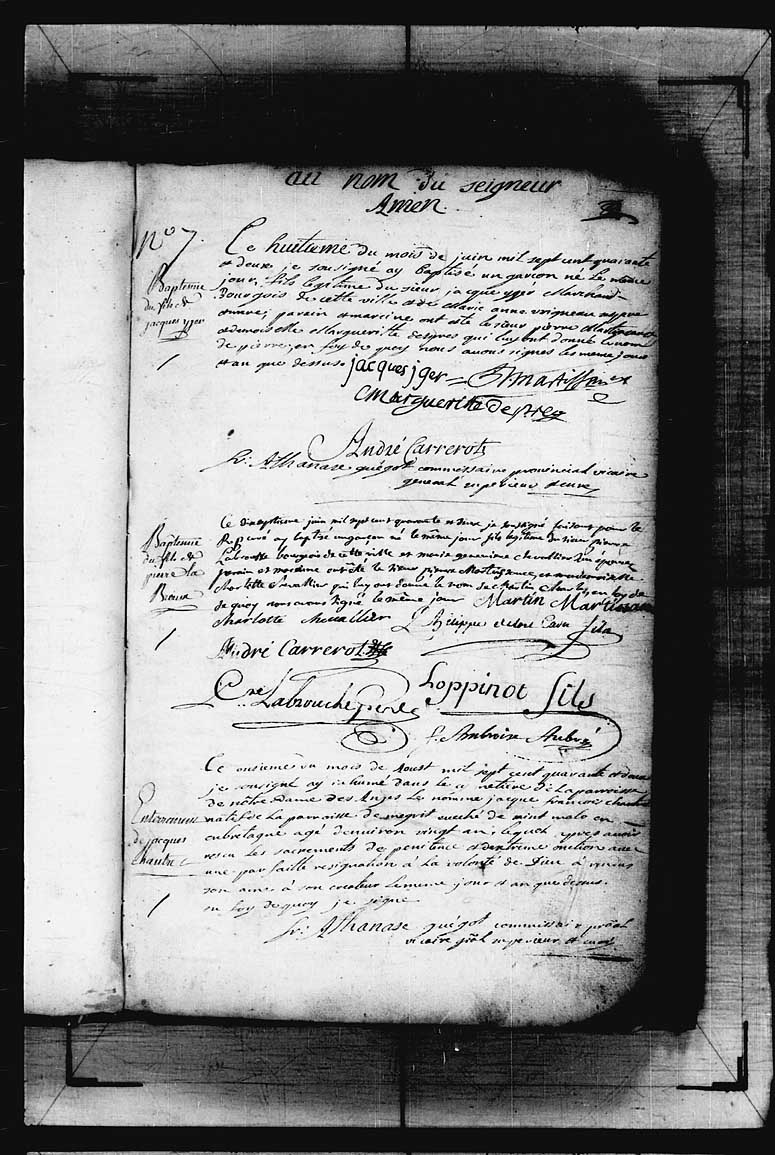 au nom du seigneur
Amen.
No 7.
Baptesme
du fils de
jacques yger
Ce huitieme du mois de juin mil sept cent quarante
et deux je sousigné ay baptisé un garçon né le meme
jour, fils legitime du sieur jacque yger Marchand
Bourgois de cette ville et de Marie anne vrigneau ses pere
et mere, parein et mareine ont eté le sieur pierre Martissance
et demoiselle Marguerite desprez qui luy ont donné le nom
de pierre, en foy de quoy nous avons signés les meme jour
et an que dessus. jacques jger Martissance
Marguerite Deprez
André Carrerot
fr. Athanase guégot commissaire provincial vicaire
general superieur et curé
Baptesme
du fils de
pierre la
Ce juin mil sept cent quarante et deux je sousigné faisant pour le
R. p. curé ay baptisé un garçon né le meme jour fils legitime du sieur pierre
Labrouche bourgois de cette ville et marie genevieve chevallier son épouse
parein et mareine ont eté le sieur pierre et mademoiselle
charlotte chevallier qui luy ont donné le nom de Martin en foy de
de quoy nous avons signé le même jour Martin
Charlotte Chevallier fils
André Carrerot
Pre Labrouche hoppinot fils
f. Ambroise Aubré
Enterrement
de jacques
chantre
Ce onsieme du mois de Aoust mil sept cent quarante et deux
je sousigné ay inhumé dans le cimetiere de La parroisse
de nôtre Dame des Anges le nommé jacque francois
natif de La parroisse de eveché de saint malo en
bretagne agé d'environ vingt ans, lequel apres avoir
recu les sacrements de penitence et d'extreme onction avec
une parfaite resignation à la volonté de Dieu à rendu
son ame à son createur le meme jour et an que dessus.
en foy de quoy je signe
fr. Athanase guégot commissaire proâl
vicaire gnâl superieur et curé